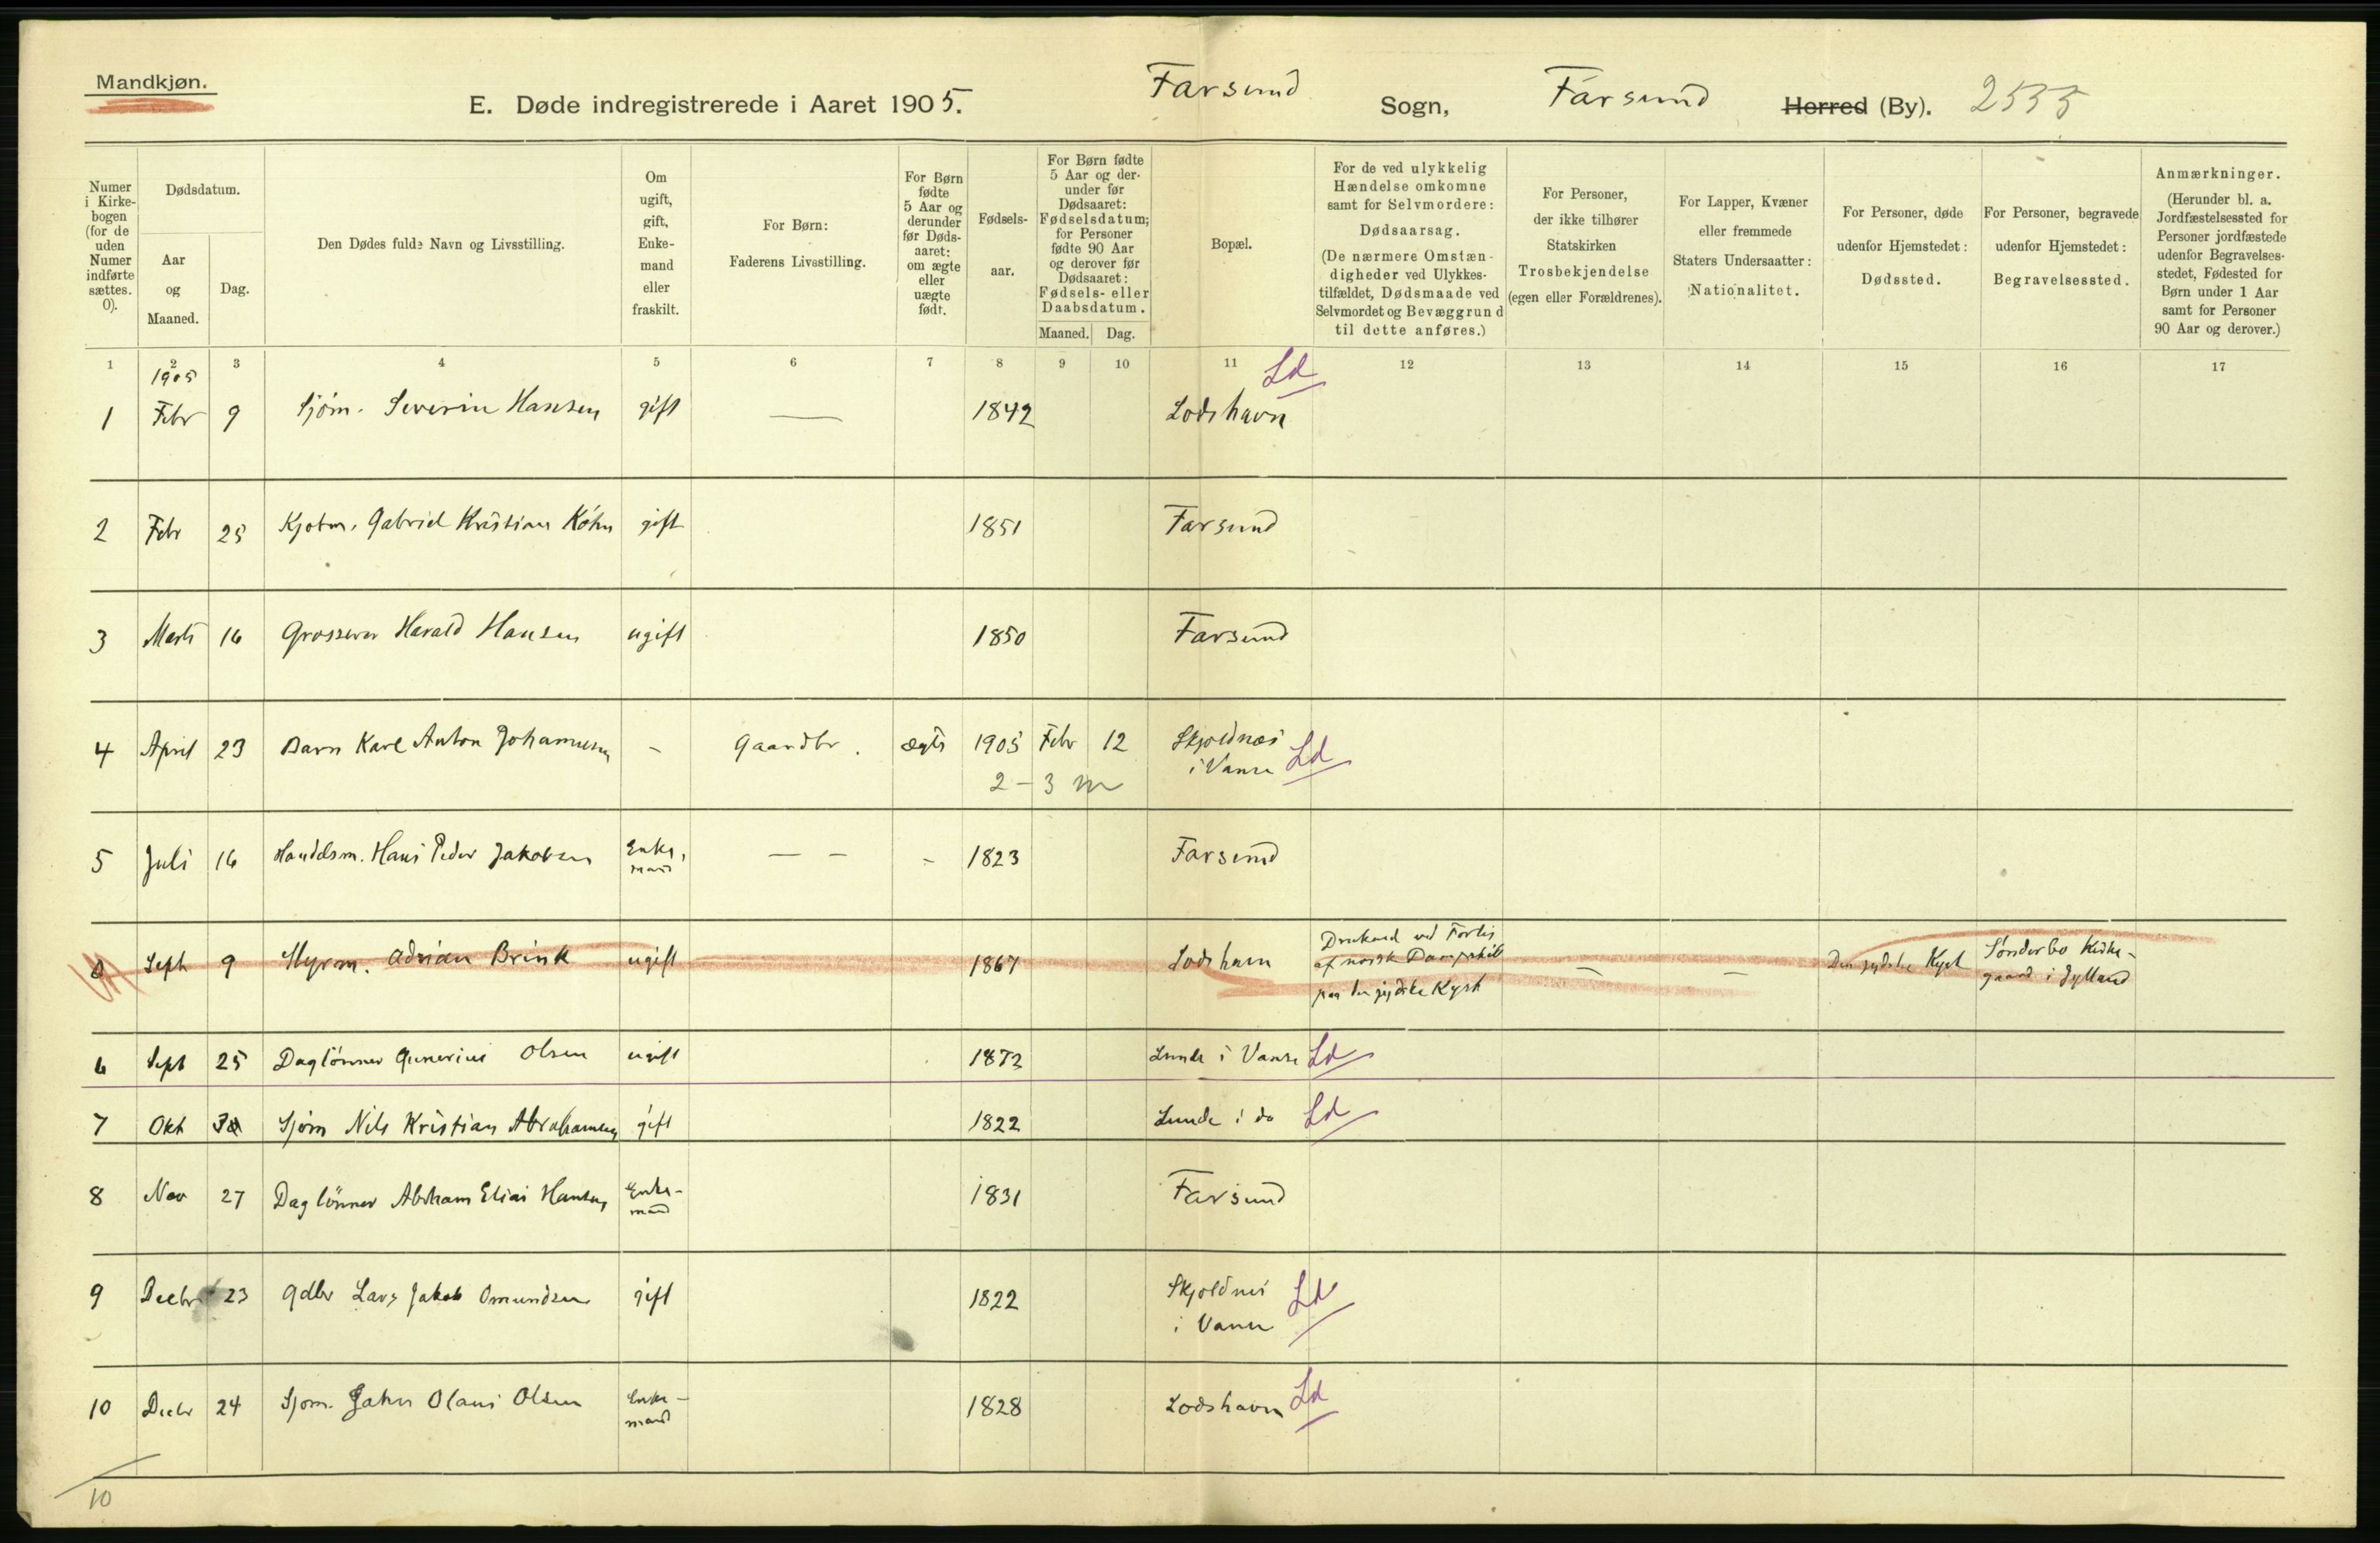 Mandkjøn.
E. Døde indregistrerede i Aaret 1905. Farsund Sogn, Farsund Herred (By). 2535
Numer i Kirke-bogen (for de uden Numer indførte sættes. 0).
Dødsdatum.
Aar og Maaned.
Dag.
Den Dødes fulde Navn og Livsstilling.
Om ugift, gift, Enke-mand eller fraskilt.
For Børn: Faderens Livsstilling.
For Børn fødte 5 Aar og derunder før Døds-aaret: om ægte eller uægte født.
Fødsels-aar.
For Børn fødte 5 Aar og der-under før Dødsaaret: Fødselsdatum; for Personer fødte 90 Aar og derover før Dødsaaret: Fødsels- eller Daabsdatum.
Maaned. Dag.
Bopæl.
For de ved ulykkelig Hændelse omkomne samt for Selvmordere: Dødsaarsag. (De nærmere Omstæn-digheder ved Ulykkes-tilfældet, Dødsmaade ved Selvmordet og Bevæggrund til dette anføres.)
For Personer, der ikke tilhører Statskirken Trosbekjendelse (egen eller Forældrenes).
For Lapper, Kvæner eller fremmede Staters Undersaatter: Nationalitet.
For Personer, døde udenfor Hjemstedet: Dødssted.
For Personer, begravede udenfor Hjemstedet: Begravelsessted.
Anmærkninger. (Herunder bl. a. Jordfæstelsessted for Personer jordfæstede udenfor Begravelses-stedet, Fødested for Børn under 1 Aar samt for Personer 90 Aar og derover.)
1 2 3 4 5 6 7 8 9 10 11 12 13 14 15 16 17
1905
Ld
1 Febr 9 Sjøm. Severin Hansen gift — 1842 Lodshavn
2 Febr 25 Kjøbm. Gabriel Kristian Køhn gift 1851 Farsund
3 Marts 16 Grosserer Harald Hansen ugift 1850 Farsund
4 April 23 Barn Karl Anton Johannesen - Gaardbr. ægte 1905 Febr 12 Skjoldnæs i Vanse Ld
2 - 3 m
5 Juli 16 Handelsm. Hans Peder Jakobsen Enke-mand — — - 1823 Farsund
0 Septb 9 Styrm. Adrian Brink ugift 1867 Lodshavn Drukned ved Forlis af norsk Dampskib paa den jydske Kyst — — Den jydske Kyst Sønderbo Kirke-gaard i Jylland
6 Septb 25 Daglønner Gunerius Olsen ugift 1873 Lunde i Vanse Ld
7 Okt Sjøm Nils Kristian Abrahamsen gift 1822 Lunde i do Ld
8 Nov 27 Daglønner Abraham Elias Hansen Enke-mand 1831 Farsund
9 Decbr 23 Gdbr Lars Jakob Omundsen gift 1822 Skjoldnes i Vanse Ld
10 Decbr 24 Sjøm. John Olaus Olsen Enke-mand 1828 Lodshavn Ld
10